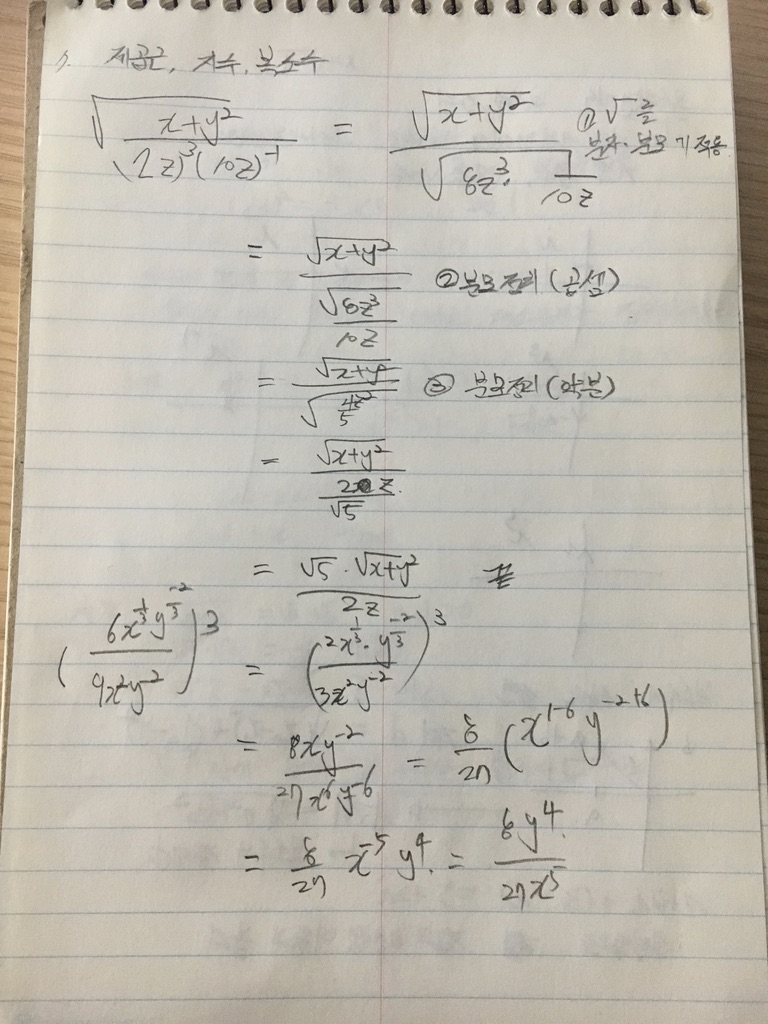 제곱근, 지수, 복소수
√((x+y²)/((2z)³(10z)⁻¹)) = √(x+y²)/√(8z³·1/(10z)) ① √ 2/2 분자·분모 기 적용
= √(x+y²)/(√(8z³)/(10z)) ② 분모정리 (곱셈)
= √(x+y)/√(4z²/5) ③ 분모정리 (약분)
= √(x+y²)/(2z/√5)
= √5·√(x+y²)/(2z)
(6x^(1/3)y^(-2/3)/(9x²y⁻²))³ = (2x^(1/3)·y^(-2/3)/(3x²y⁻²))³
= 8xy⁻²/(27x⁶y⁻⁶) = 8/27(x^(1-6)y^(-2+6))
= 8/27 x⁻⁵y⁴. = 8y⁴./(27x⁵)